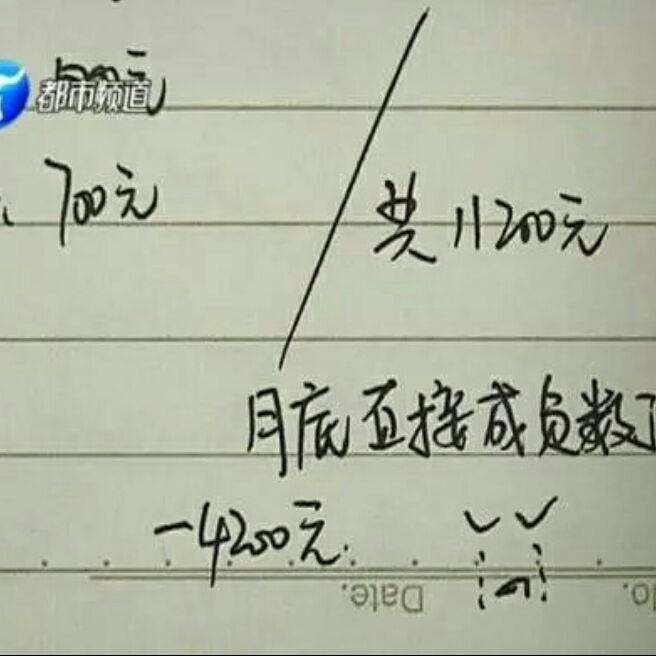 都市频道
700元
共11200元
月底直接成负数了
-4200元.
Date.